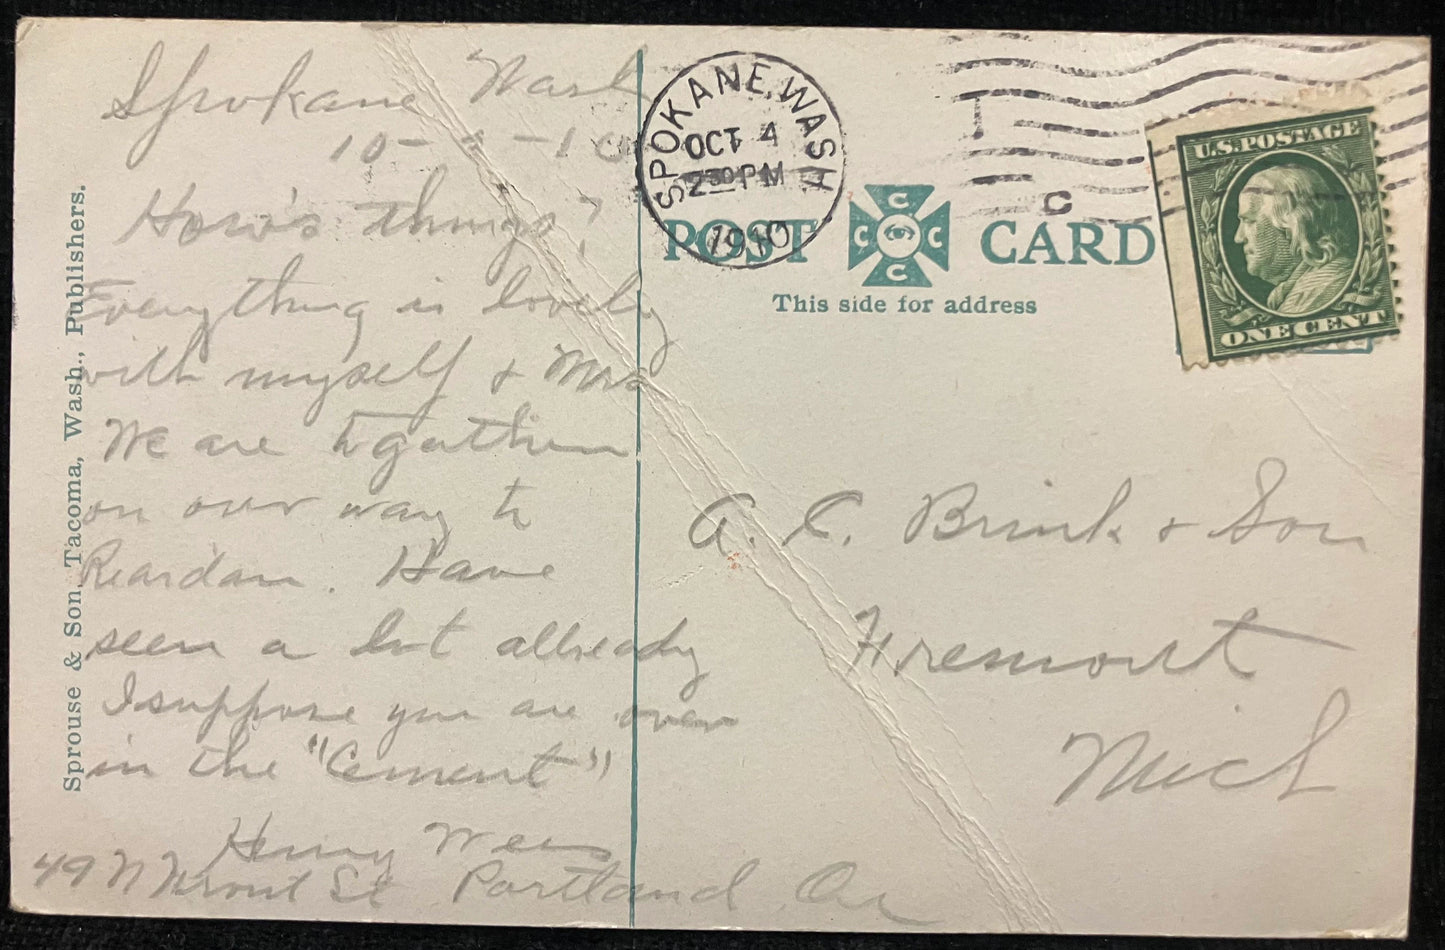 Spokane Wash
10- -10
How's things?
Everything is lovely
with myself & Mrs
We are togather
on our way to
Reardan. Have
seen a lot allready
I suppose you are over
in the "Cement"
Henry
49 N Front St Portland Or
Sprouse & Son, Tacoma, Wash., Publishers.
SPOKANE, WASH
OCT 4
2 30 PM
1910
C
POST CARD
C
C C
C
This side for address
U.S. POSTAGE
ONE CENT
A. C. Brink & Son
Fremont
Mich